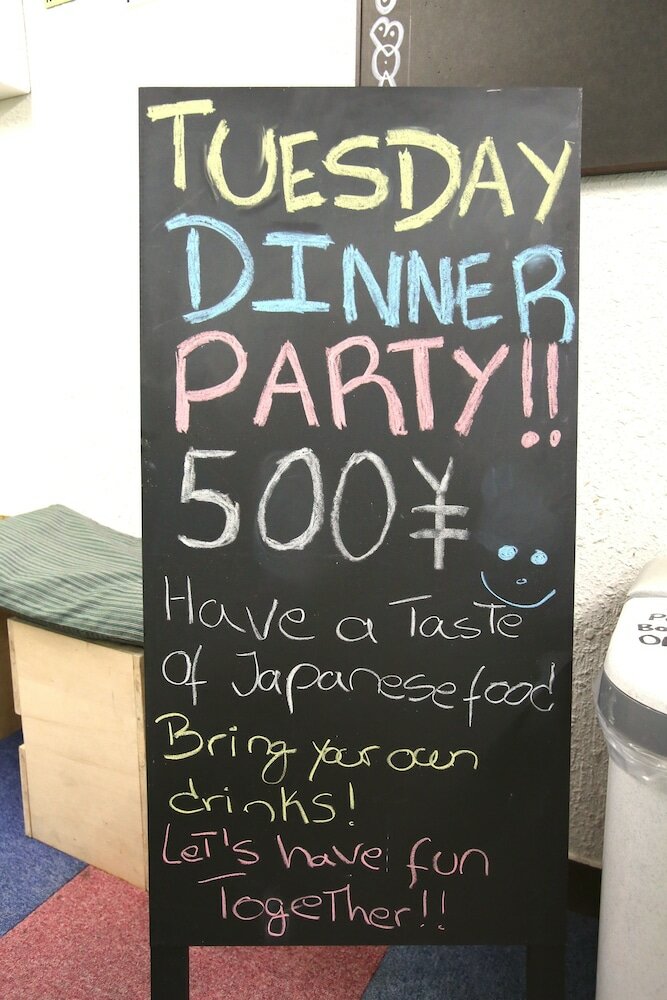 TUESDAY
DINNER
PARTY!!
500¥
Have a Taste
of Japanese food
Bring your own
drinks!
Let's have fun
Together!!